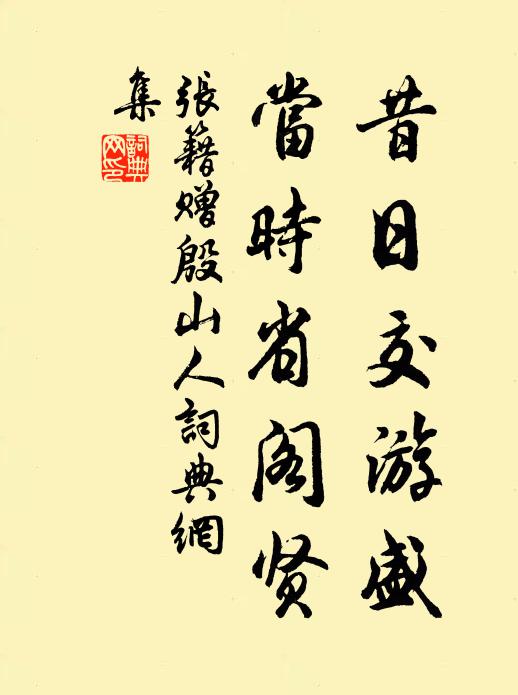 昔日交游盛
當時省阁贤
張籍贈殷山人詞典網
集
詞典
网印